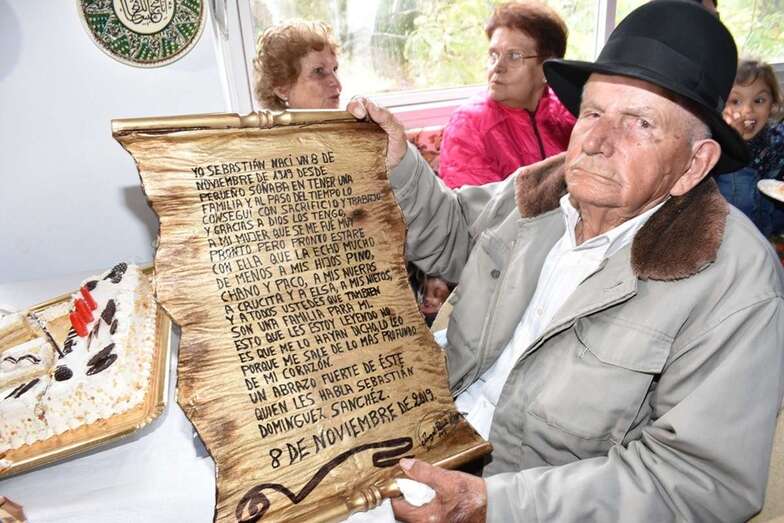 YO SEBASTIÁN NACI UN 8 DE
NOVIEMBRE DE 1919 DESDE
PEQUEÑO SOÑABA EN TENER UNA
FAMILIA Y AL PASO DEL TIEMPO LO
CONSEGUI CON SACRIFICIO Y TRABAJO
Y GRACIAS A DIOS LOS TENGO,
A MI MUJER QUE SE ME FUE MUY
PRONTO PERO PRONTO ESTARE
CON ELLA QUE LA ECHO MUCHO
DE MENOS A MIS HIJOS PINO,
CHANO Y PACO, A MIS NUERAS
A CRUCITA Y A ELSA, A MIS NIETOS,
Y A TODOS USTEDES QUE TAMBIEN
SON UNA FAMILIA PARA MI
ESTO QUE LES ESTOY LEYENDO NO
ES QUE ME LO HAYAN DICHO LO LEO
PORQUE ME SALE DE LO MAS PROFUNDO
DE MI CORAZÓN.
UN ABRAZO FUERTE DE ÉSTE
QUIEN LES HABLA SEBASTIÁN
DOMINGUEZ SANCHEZ.
8 DE NOVIEMBRE DE 2019